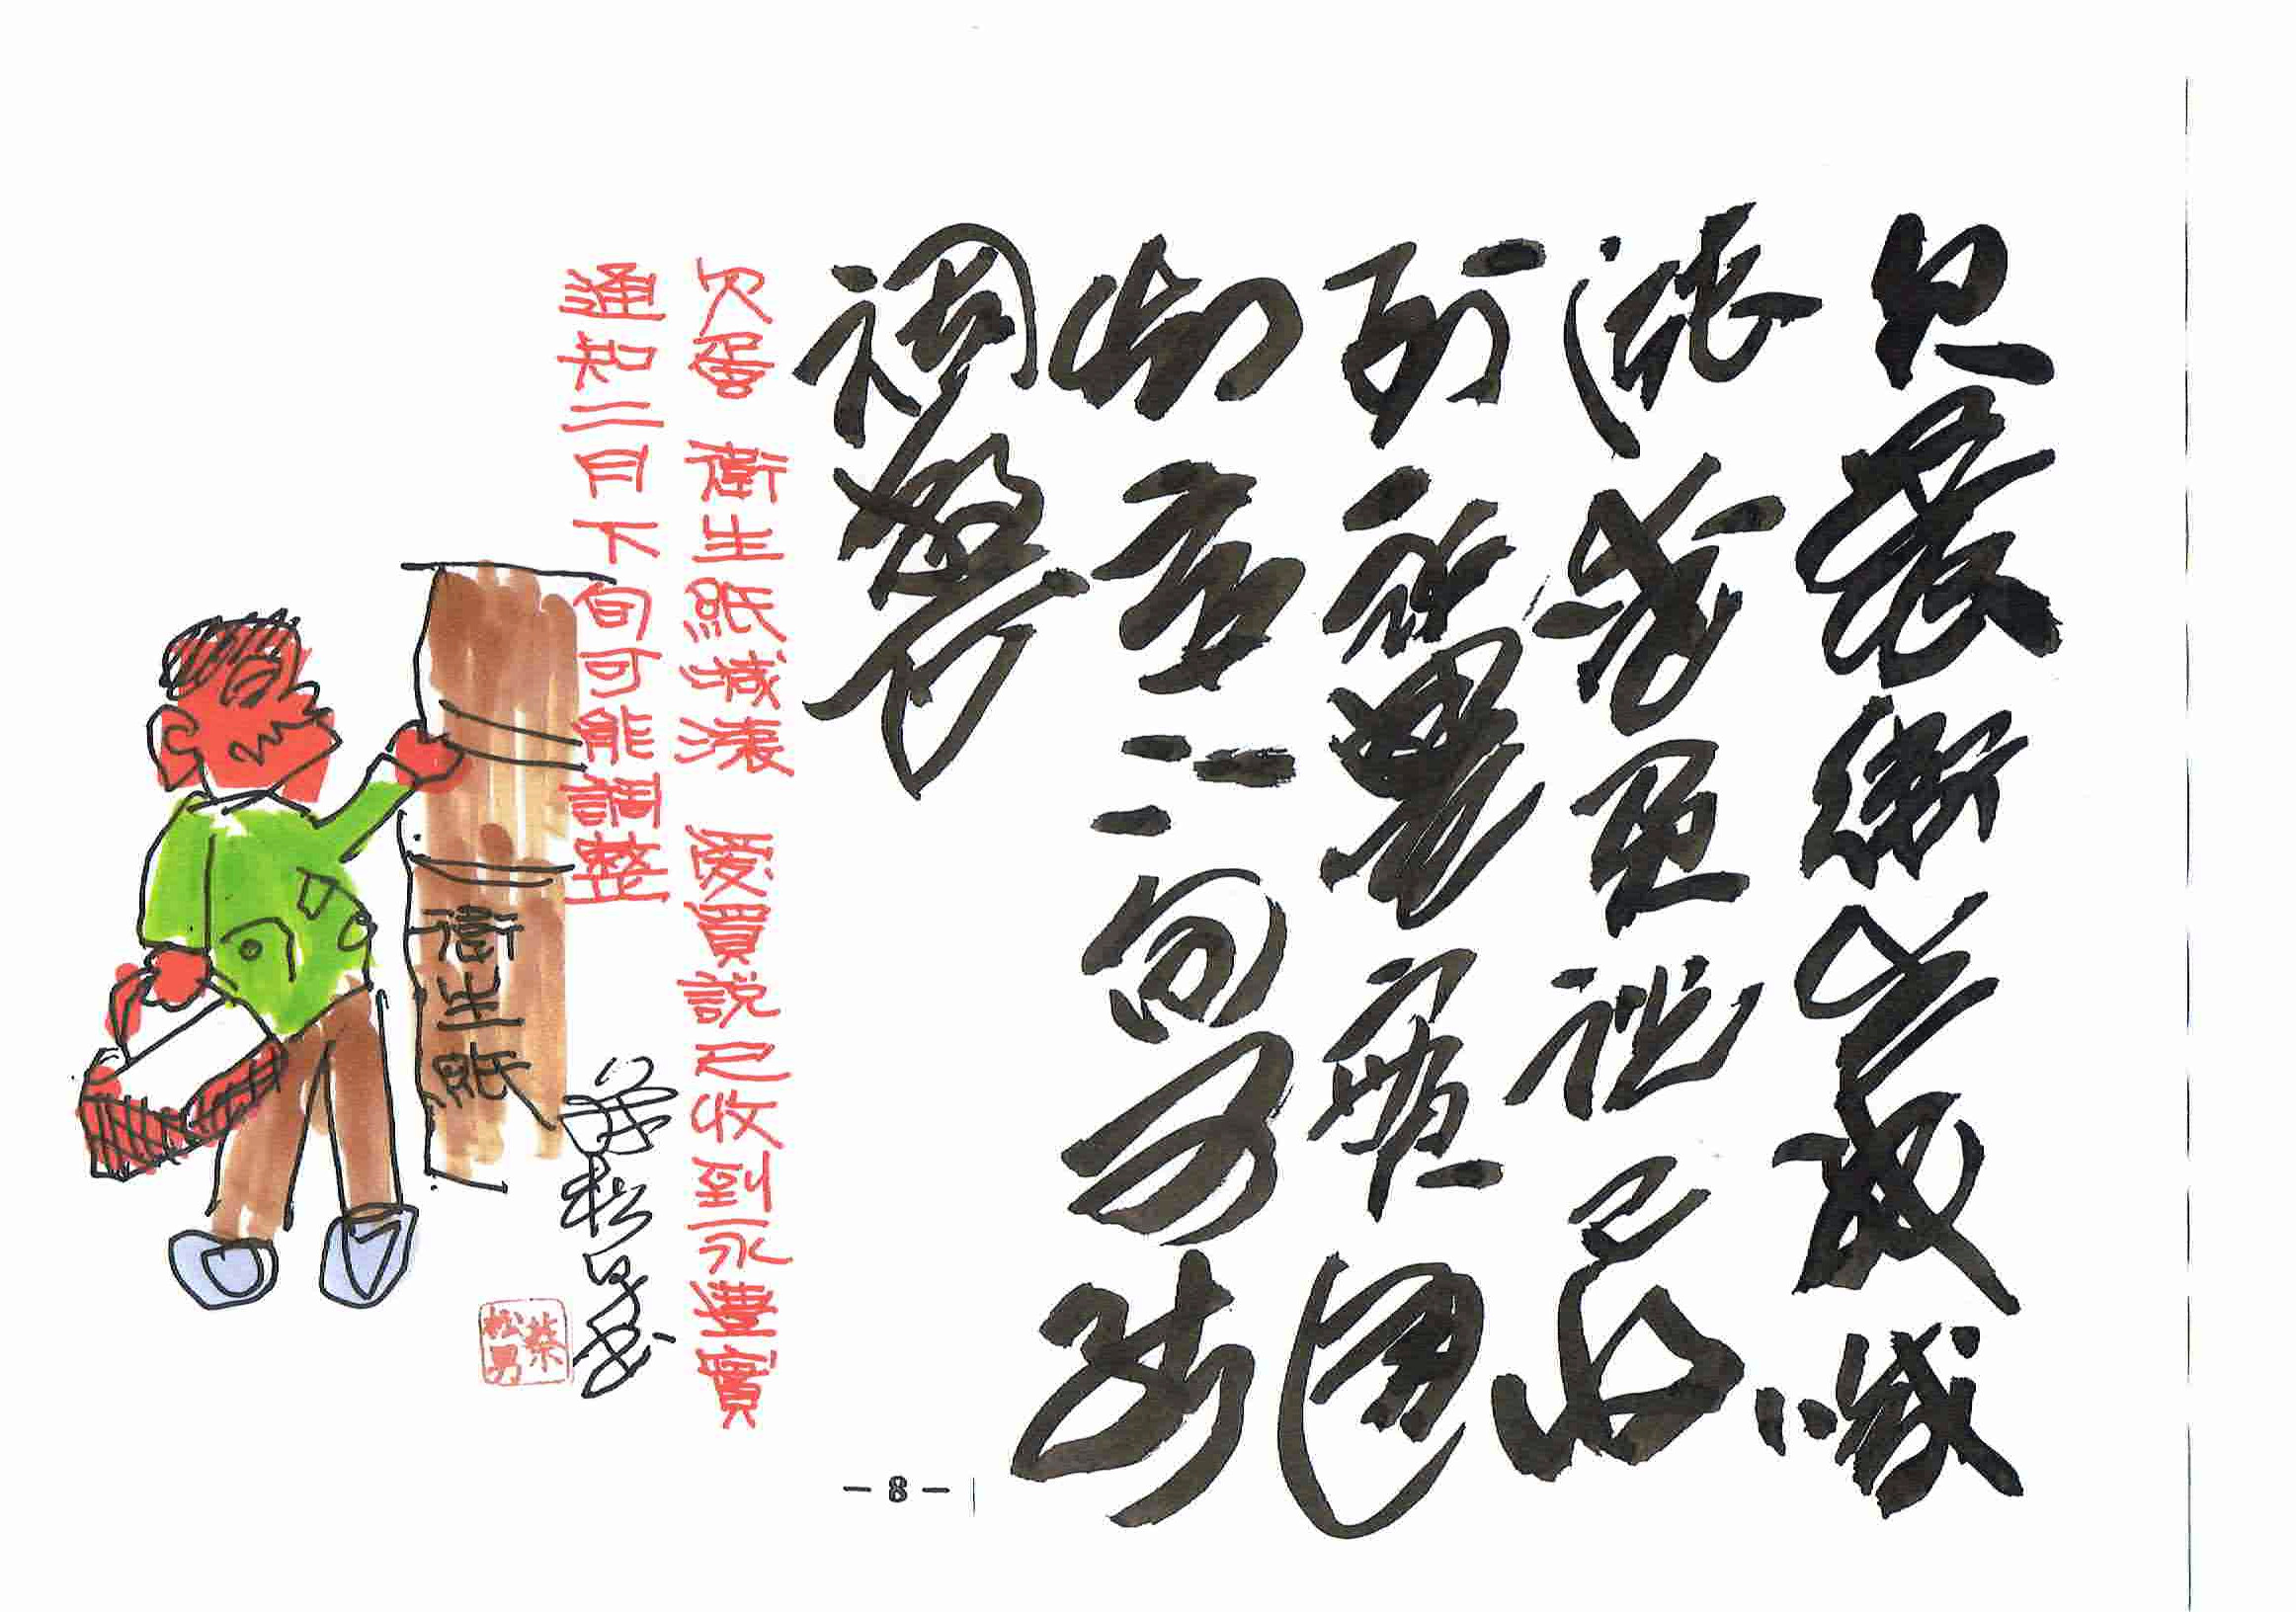 欠蛋衛生紙喊
漲愛買說已收
到永豐實通
知二月下旬可能
調整
欠蛋 衛生紙減漲 愛買說已收到永豐實
通知二月下旬可能調整
衛生紙
蔡松男書
蔡松男
- 8 -